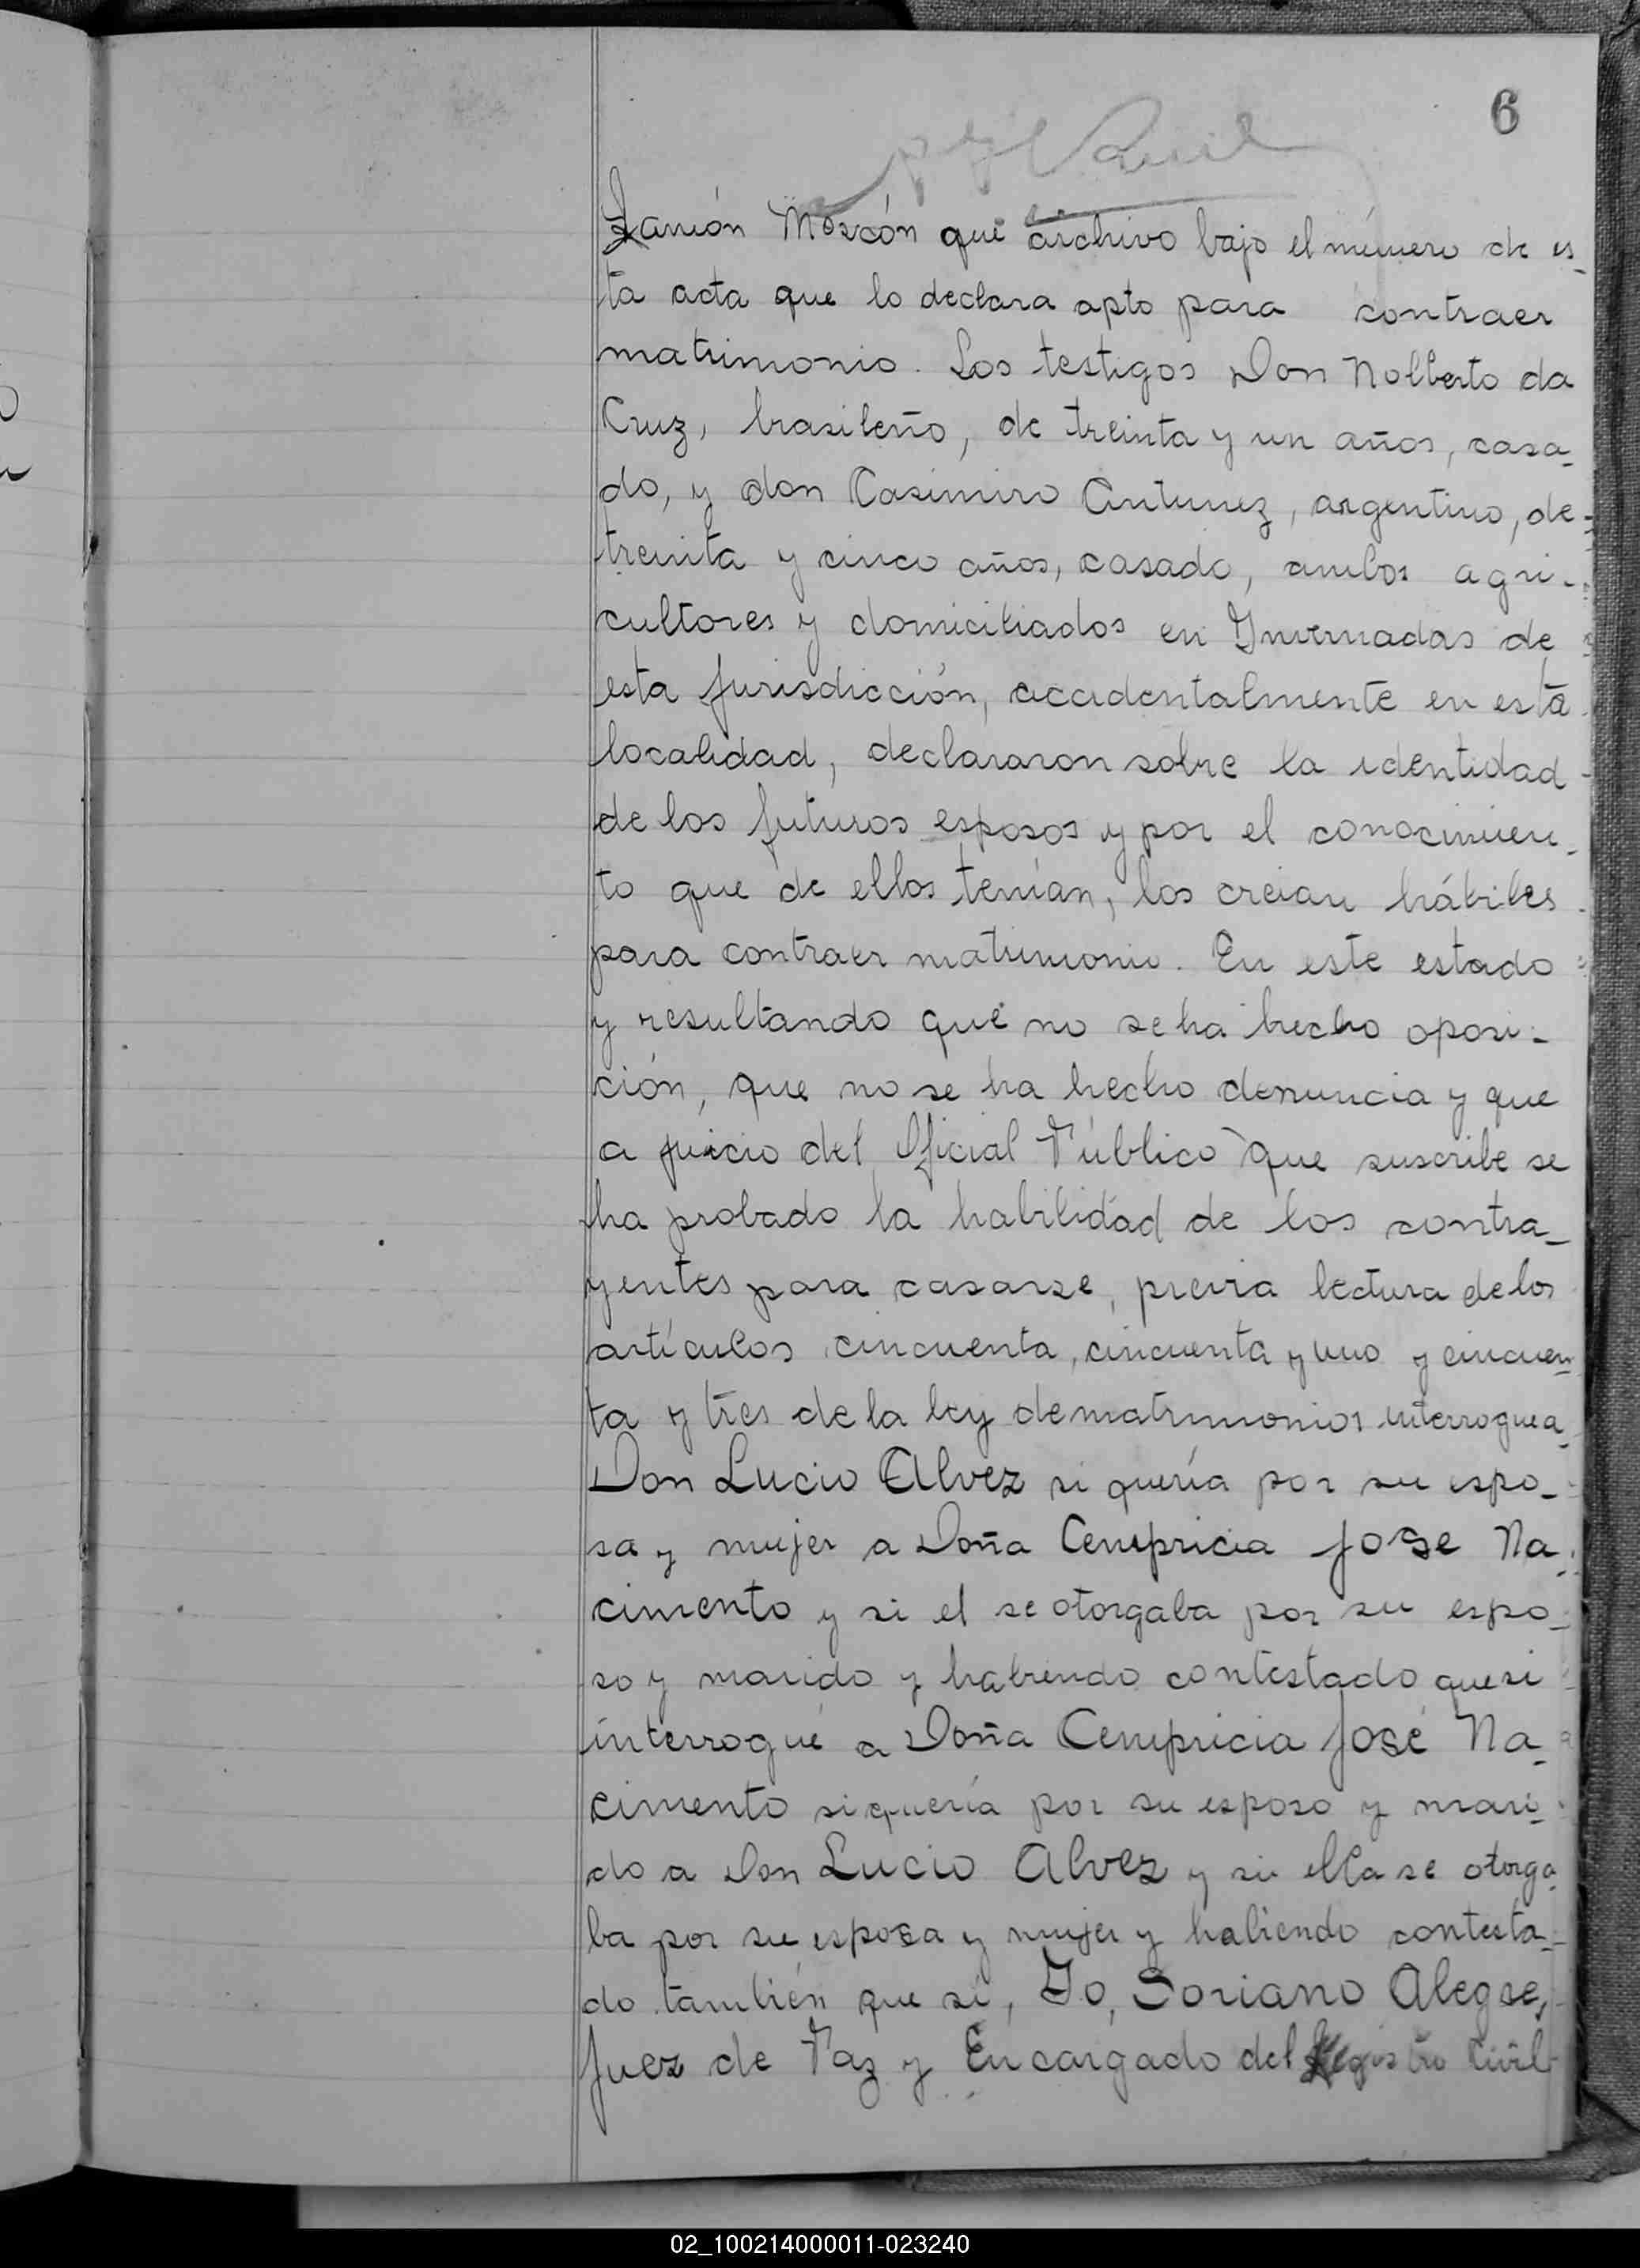 6
Ramón Moscón que archivo bajo el número de es-
ta acta que lo declara apto para contraer
matrimonio. Los testigos Don Nolberto da
Cruz, brasileño, de treinta y un años, casa-
do, y don Casimiro Antunez, argentino, de
treinta y cinco años, casado, ambos agri-
cultores y domiciliados en Invernadas de
esta jurisdicción, accidentalmente en esta
localidad, declararon sobre la identidad
de los futuros esposos y por el conocimien-
to que de ellos tenían, los creian hábiles
para contraer matrimonio. En este estado
y resultando que no se ha hecho oposi-
ción, que no se ha hecho denuncia y que
a juicio del Oficial Público que suscribe se
ha probado la habilidad de los contra-
yentes para casarse, previa lectura de los
artículos cincuenta, cincuenta y uno y cincuen-
ta y tres de la ley de matrimonios interrogue a
Don Lucio Alvez si quería por su espo-
sa y mujer a Doña Cenepricia Jose Na-
cimento y si el se otorgaba por su espo-
so y marido y habiendo contestado que si
interrogué a Doña Cenepricia José Na-
cimento si quería por su esposo y mari-
do a Don Lucio Alvez y si ella se otorga-
ba por su esposa y mujer y habiendo contesta-
do también que si, Yo, Soriano Alegre,
Juez de Paz y Encargado del Registro Civil
02_100214000011-023240